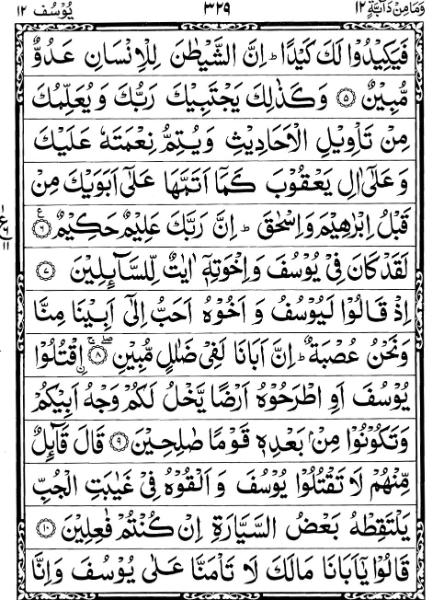 وَمَا مِنْ دَآبَّةٍ ١٢ ٣٢٩ يُوْسُف ١٢
فَيَكِيْدُوْا لَكَ كَيْدًا ؕ اِنَّ الشَّيْطٰنَ لِلْاِنْسَانِ عَدُوٌّ
مُّبِيْنٌ ۝۵ وَكَذٰلِكَ يَجْتَبِيْكَ رَبُّكَ وَيُعَلِّمُكَ
مِنْ تَاْوِيْلِ الْاَحَادِيْثِ وَيُتِمُّ نِعْمَتَهٗ عَلَيْكَ
وَعَلٰۤى اٰلِ يَعْقُوْبَ كَمَاۤ اَتَمَّهَا عَلٰۤى اَبَوَيْكَ مِنْ
قَبْلُ اِبْرٰهِيْمَ وَاِسْحٰقَ ؕ اِنَّ رَبَّكَ عَلِيْمٌ حَكِيْمٌ ۝۶
لَقَدْ كَانَ فِيْ يُوْسُفَ وَاِخْوَتِهٖۤ اٰيٰتٌ لِّلسَّآئِلِيْنَ ۝۷
اِذْ قَالُوْا لَيُوْسُفُ وَاَخُوْهُ اَحَبُّ اِلٰۤى اَبِيْنَا مِنَّا
وَنَحْنُ عُصْبَةٌ ؕ اِنَّ اَبَانَا لَفِيْ ضَلٰلٍ مُّبِيْنِ ۝۸ ۣاقْتُلُوْا
يُوْسُفَ اَوِ اطْرَحُوْهُ اَرْضًا يَّخْلُ لَكُمْ وَجْهُ اَبِيْكُمْ
وَتَكُوْنُوْا مِنْۢ بَعْدِهٖ قَوْمًا صٰلِحِيْنَ ۝۹ قَالَ قَآئِلٌ
مِّنْهُمْ لَا تَقْتُلُوْا يُوْسُفَ وَاَلْقُوْهُ فِيْ غَيٰبَتِ الْجُبِّ
يَلْتَقِطْهُ بَعْضُ السَّيَّارَةِ اِنْ كُنْتُمْ فٰعِلِيْنَ ۝۱۰
قَالُوْا يٰۤاَبَانَا مَالَكَ لَا تَاْمَنَّا عَلٰى يُوْسُفَ وَاِنَّا